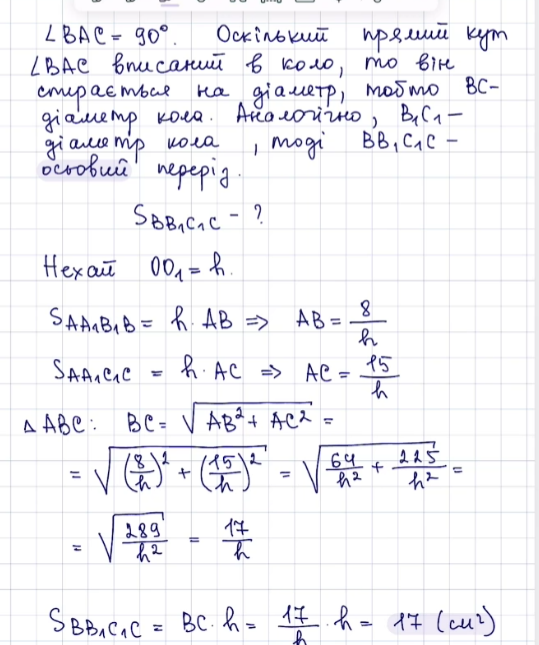 ∠BAC = 90°. Оскілький прямий кут
∠BAC вписаний в коло, то він
спирається на діаметр, тобто BC-
діаметр кола. Аналогічно, B₁C₁ –
діаметр кола , тоді BB₁C₁C –
осьовий переріз.
S_BB₁C₁C - ?
Нехай OO₁ = h.
S_AA₁B₁B = h · AB => AB = 8/h
S_AA₁C₁C = h · AC => AC = 15/h
△ABC: BC = √(AB² + AC²) =
= √((8/h)² + (15/h)²) = √(64/h² + 225/h²) =
= √(289/h²) = 17/h
S_BB₁C₁C = BC · h = 17/h · h = 17 (см²)